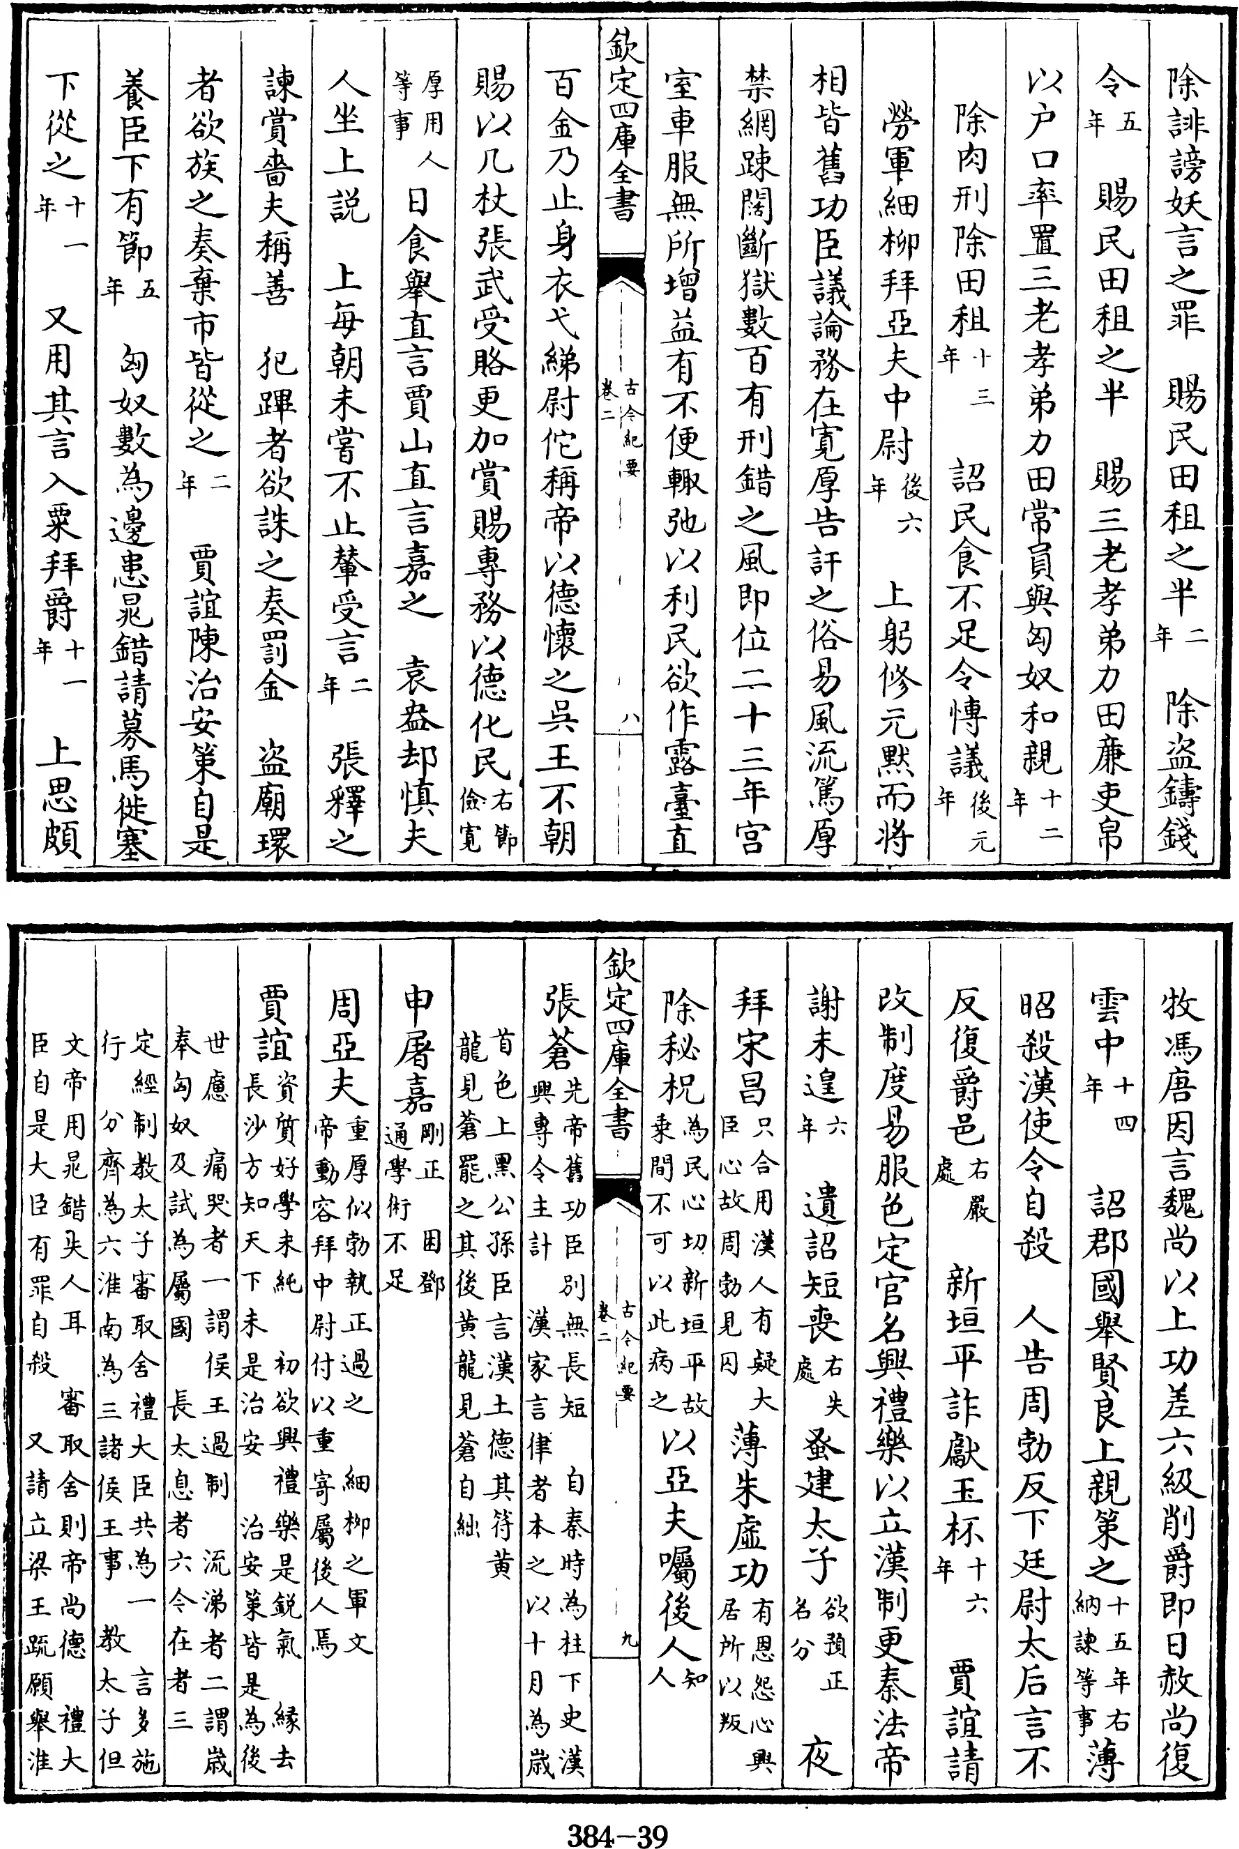 除誹謗妖言之罪　賜民田租之半二年　除盗鑄錢
令五年　賜民田租之半　賜三老孝弟力田廉吏帛
以户口率置三老孝弟力田常員與匈奴和親十二年
除肉刑除田租十三年　詔民食不足令愽議後元年
勞軍細柳拜亞夫中尉後六年　上躬修元黙而將
相皆舊功臣議論務在寛厚告訐之俗易風流篤厚
禁網踈闊斷獄數百有刑錯之風即位二十三年宫
室車服無所增益有不便輙弛以利民欲作露臺直
欽定四庫全書　古今紀要　卷二　八
百金乃止身衣弋綈尉佗稱帝以德懷之吳王不朝
賜以几杖張武受賂更加賞賜專務以德化民右節儉寛
厚用人等事　日食舉直言賈山直言嘉之　袁盎却慎夫
人坐上説　上每朝未嘗不止輦受言二年　張釋之
諫賞嗇夫稱善　犯蹕者欲誅之奏罰金　盗廟環
者欲族之奏棄市皆從之二年　賈誼陳治安策自是
養臣下有節五年　匈奴數為邊患鼂錯請募馬徙塞
下從之十一年　又用其言入粟拜爵十一年　上思頗
牧馮唐因言魏尚以上功差六級削爵即日赦尚復
雲中十四年　詔郡國舉賢良上親策之十五年右納諫等事　薄
昭殺漢使令自殺　人告周勃反下廷尉太后言不
反復爵邑右嚴處　新垣平詐獻玉杯十六年　賈誼請
改制度易服色定官名興禮樂以立漢制更秦法帝
謝未遑六年　遺詔短喪右失處　蚤建太子欲預正名分　夜
拜宋昌只合用漢人有疑大臣心故周勃見囚　薄朱虚功有恩怨心興居所以叛
除秘柷為民心切新垣平故乘間不可以此病之　以亞夫囑後人知人
欽定四庫全書　古今紀要　卷二　九
張蒼先帝舊功臣别無長短　自秦時為柱下史漢興專令主計　漢家言律者本之以十月為歳
首色上黒公孫臣言漢土德其符黄龍見蒼罷之其後黄龍見蒼自絀
申屠嘉剛正　困鄧通學術不足
周亞夫重厚似勃執正過之　細柳之軍文帝動容拜中尉付以重寄屬後人焉
賈誼資質好學未純　初欲興禮樂是鋭氣　緣去長沙方知天下未是治安　治安策皆是為後
世慮　痛哭者一謂侯王過制　流涕者二謂歳奉匈奴及試為屬國　長太息者六今在者三
定經制教太子審取舍禮大臣共為一　言多施行　分齊為六淮南為三諸侯王事　教太子但
文帝用鼂錯失人耳　審取舍則帝尚德　禮大臣自是大臣有罪自殺　又請立梁王䟽願舉淮
384-39